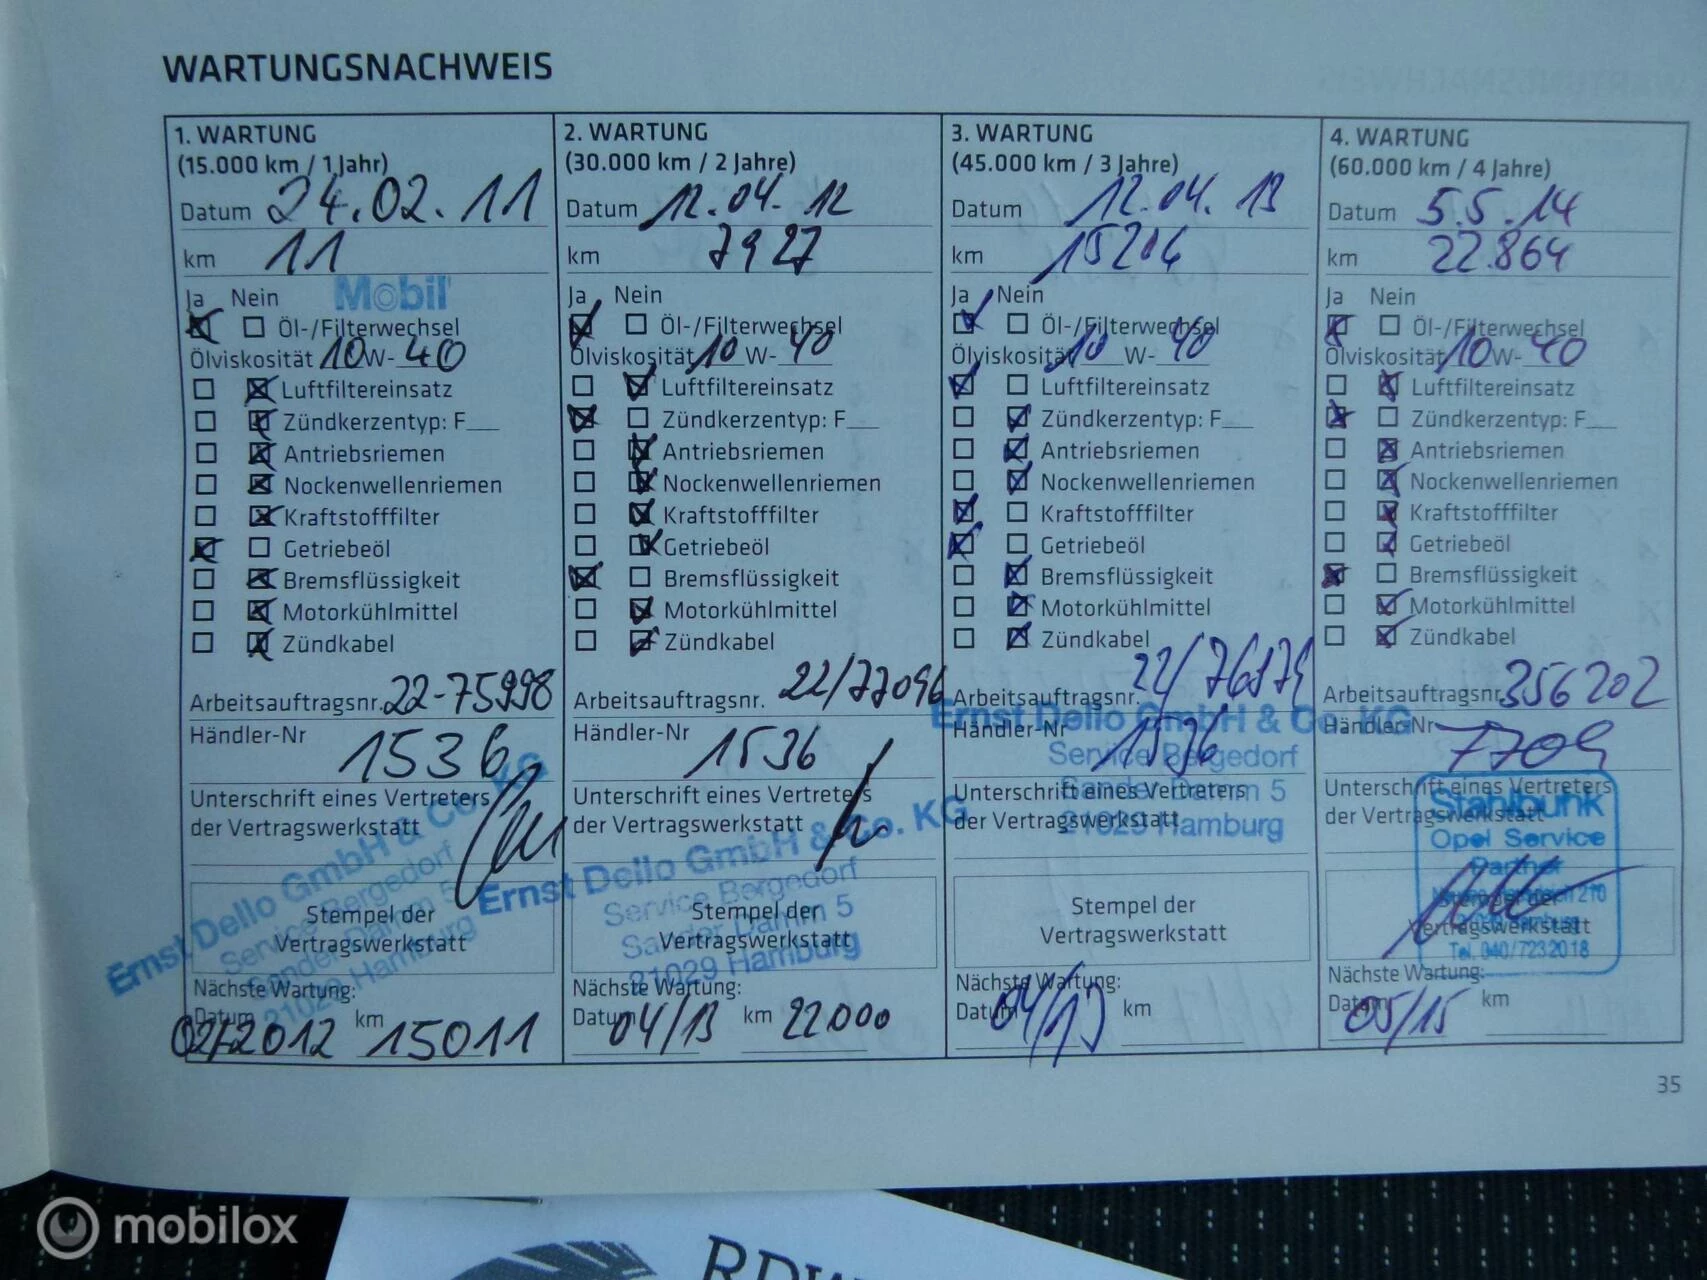 WARTUNGSNACHWEIS
1. WARTUNG
(15.000 km / 1 Jahr)
Datum 24.02.11
km 11
Mobil
Ja Nein
Öl-/Filterwechsel
Ölviskosität 10 W- 40
Luftfiltereinsatz
Zündkerzentyp: F
Antriebsriemen
Nockenwellenriemen
Kraftstofffilter
Getriebeöl
Bremsflüssigkeit
Motorkühlmittel
Zündkabel
Arbeitsauftragsnr. 22-75998
Händler-Nr 1536
Unterschrift eines Vertreters
der Vertragswerkstatt
Ernst Dello GmbH & Co. KG
Service Bergedorf
Sander Damm 5
21029 Hamburg
Stempel der
Vertragswerkstatt
Nächste Wartung:
Datum 02/2012 km 15011
2. WARTUNG
(30.000 km / 2 Jahre)
Datum 12.04.12
km 7927
Ja Nein
Öl-/Filterwechsel
Ölviskosität 10 W- 40
Luftfiltereinsatz
Zündkerzentyp: F
Antriebsriemen
Nockenwellenriemen
Kraftstofffilter
Getriebeöl
Bremsflüssigkeit
Motorkühlmittel
Zündkabel
Arbeitsauftragsnr. 22/77096
Händler-Nr 1536
Unterschrift eines Vertreters
der Vertragswerkstatt
Ernst Dello GmbH & Co. KG
Service Bergedorf
Sander Damm 5
21029 Hamburg
Stempel der
Vertragswerkstatt
Nächste Wartung:
Datum 04/13 km 22000
3. WARTUNG
(45.000 km / 3 Jahre)
Datum 12.04.13
km 15206
Ja Nein
Öl-/Filterwechsel
Ölviskosität 10 W- 40
Luftfiltereinsatz
Zündkerzentyp: F
Antriebsriemen
Nockenwellenriemen
Kraftstofffilter
Getriebeöl
Bremsflüssigkeit
Motorkühlmittel
Zündkabel
Arbeitsauftragsnr.
Ernst Dello GmbH & Co. KG
Händler-Nr 1536
Service Bergedorf
Sander Damm 5
21029 Hamburg
Unterschrift eines Vertreters
der Vertragswerkstatt
Stempel der
Vertragswerkstatt
Nächste Wartung:
Datum km
4. WARTUNG
(60.000 km / 4 Jahre)
Datum 5.5.14
km 22.864
Ja Nein
Öl-/Filterwechsel
Ölviskosität 10 W- 40
Luftfiltereinsatz
Zündkerzentyp: F
Antriebsriemen
Nockenwellenriemen
Kraftstofffilter
Getriebeöl
Bremsflüssigkeit
Motorkühlmittel
Zündkabel
Arbeitsauftragsnr. 356202
Händler-Nr 7709
Unterschrift eines Vertreters
der Vertragswerkstatt
Opel Service
Partner
Tel. 040/7232018
Stempel der
Vertragswerkstatt
Nächste Wartung:
Datum 05/15 km
35
mobilox